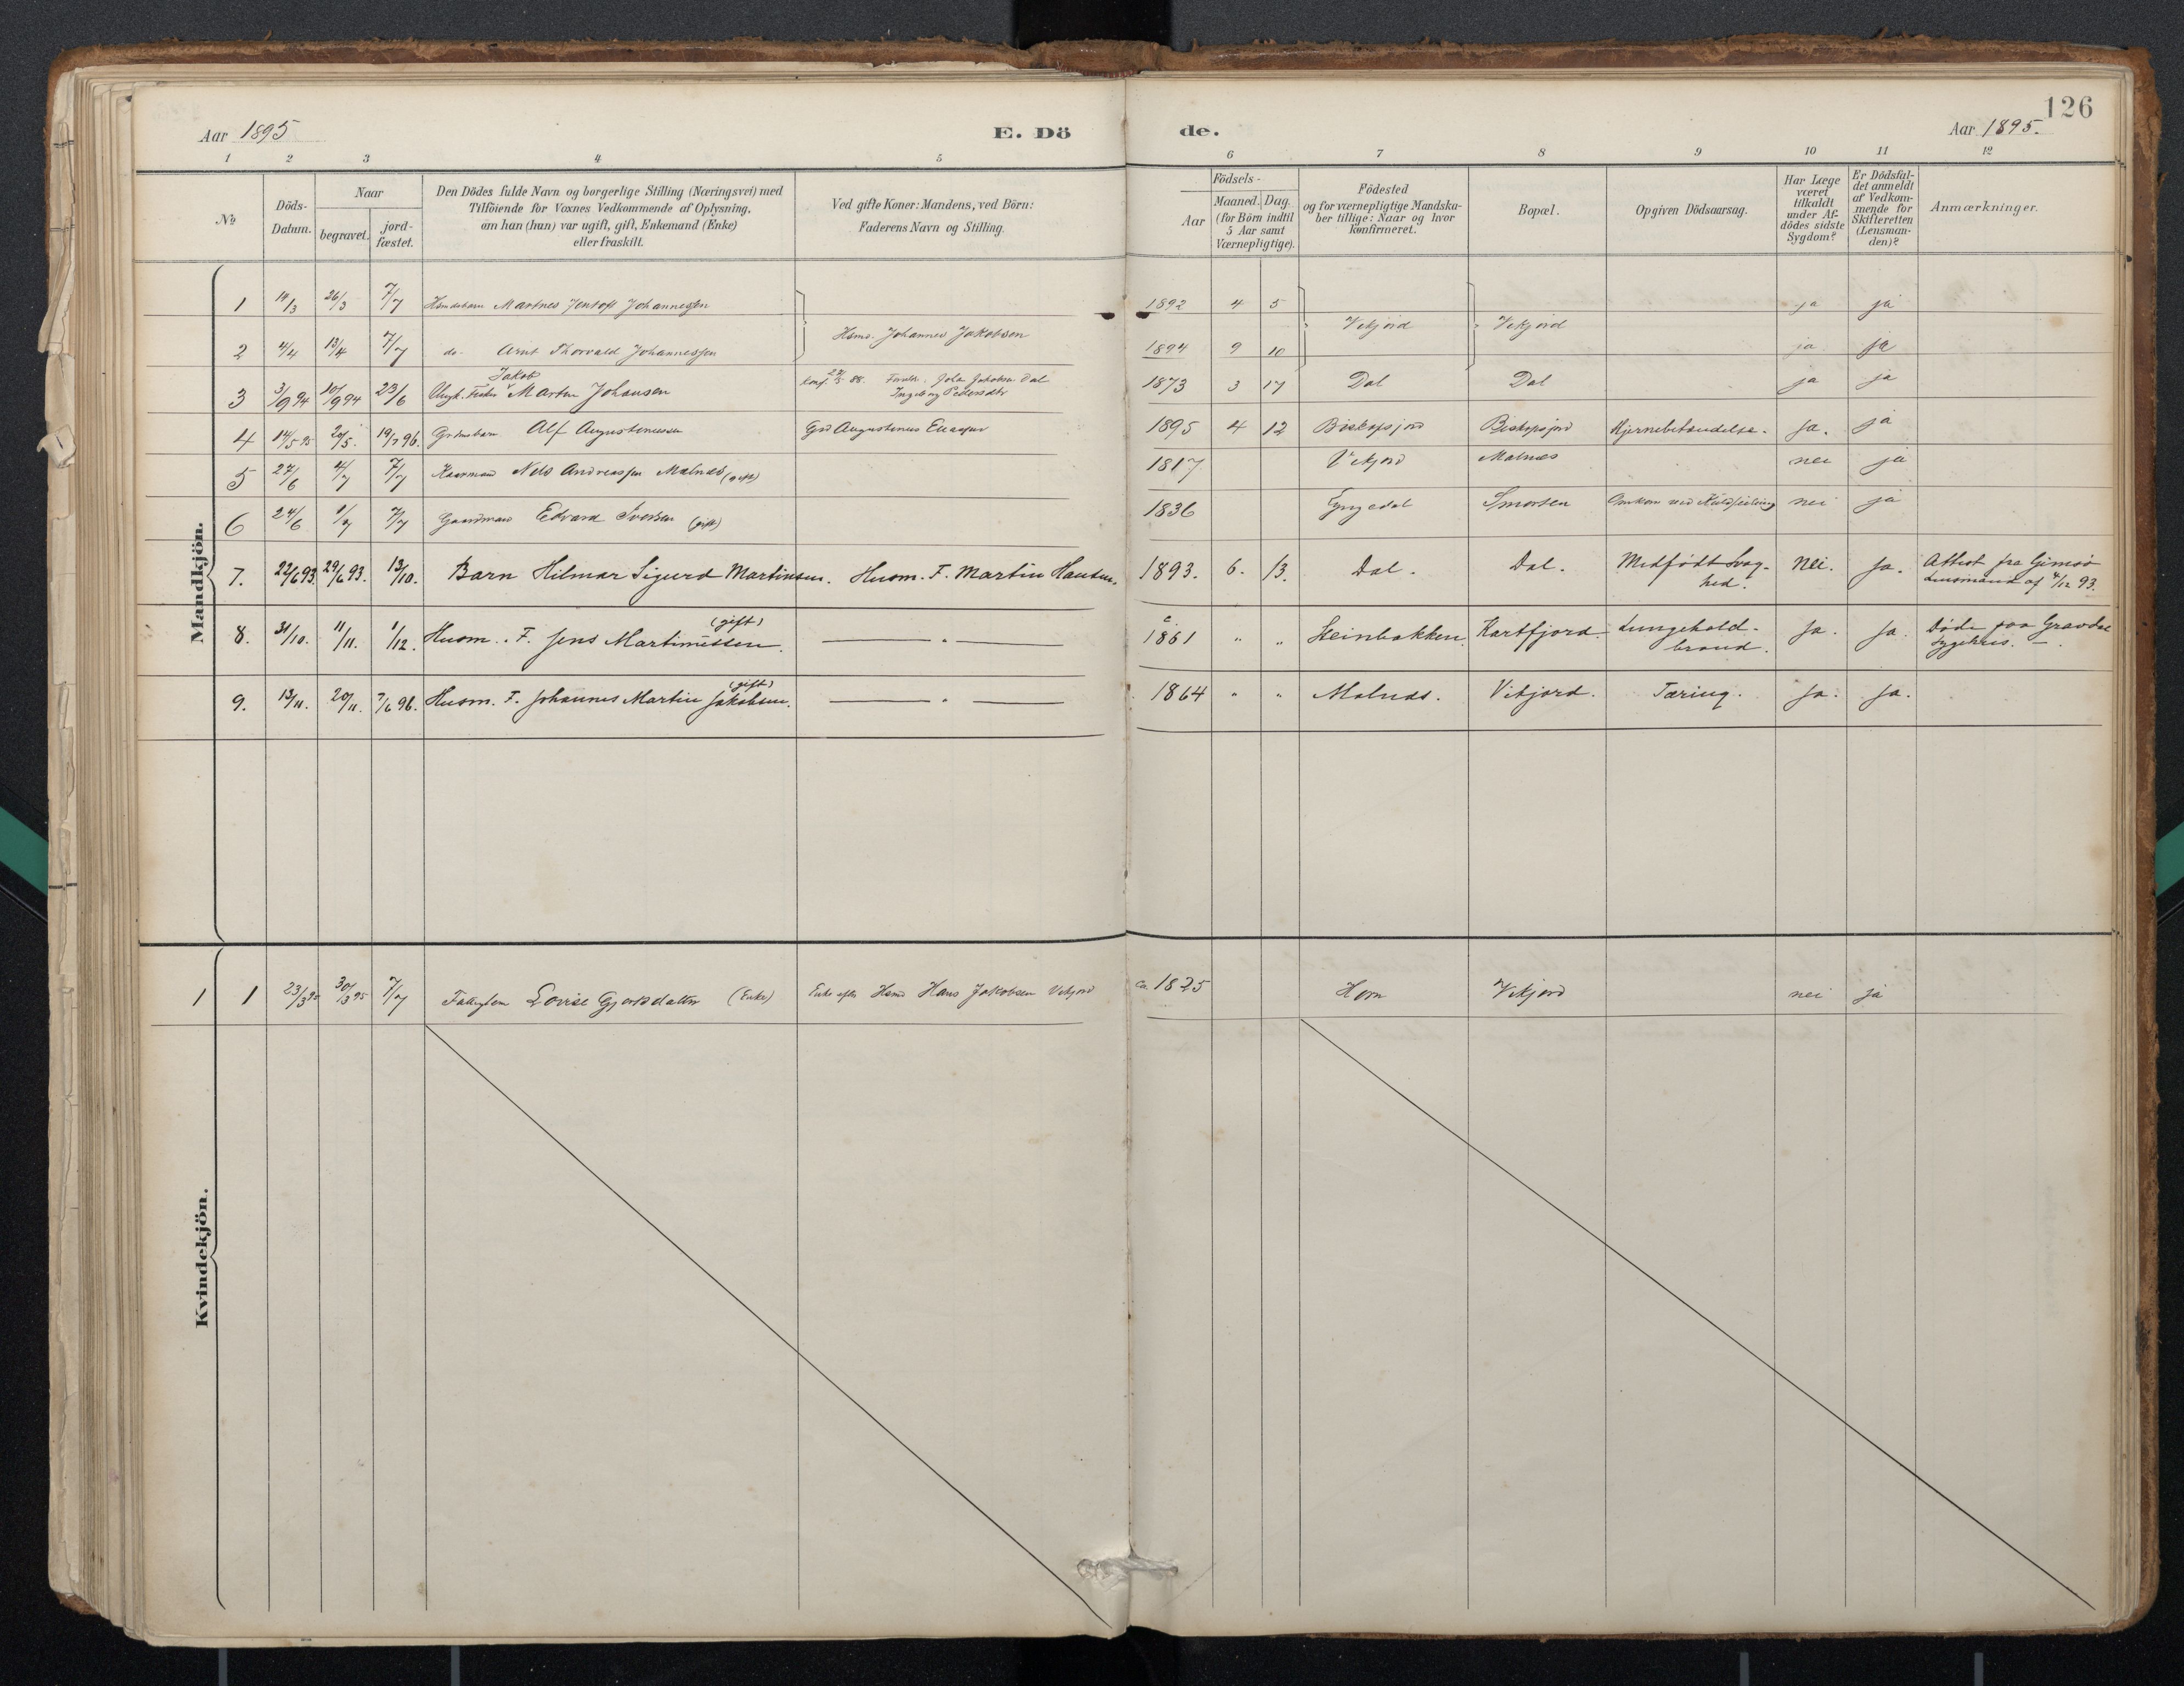 126
Aar 1895
E. Dö
de.
Aar 1895.
1 2 3 4 5 6 7 8 9 10 11 12
No
Döds-
Datum.
Naar
begravet.
jord-
fæstet.
Den Dödes fulde Navn og borgerlige Stilling (Næringsvei) med
Tilföiende for Voxnes Vedkommende af Oplysning,
om han (hun) var ugift, gift, Enkemand (Enke)
eller fraskilt.
Ved gifte Koner: Mandens, ved Börn:
Faderens Navn og Stilling.
Födsels-
Aar
Maaned. Dag.
(for Börn indtil
5 Aar samt
Værnepligtige).
Födested
og for værnepligtige Mandska-
ber tillige: Naar og hvor
konfirmeret.
Bopæl.
Opgiven Dödsaarsag.
Har Læge
været
tilkaldt
under Af-
dödes sidste
Sygdom?
Er Dödsfal-
det anmeldt
af Vedkom-
mende for
Skifteretten
(Lensman-
den)?
Anmærkninger.
Mandkjön.
1 14/3 26/3 7/7 Hsmdsbarn Martnes Jentoft Johannessen 1892 4 5 ja ja
Hsmd. Johannes Jakobsen Vikjord Vikjord
2 4/4 13/4 7/7 do. Arnt Thorvald Johannessen 1894 9 10 ja ja
Jakob
3 3/9 94 10/9 94 23/6 Ungk. Fisker Martin Johansen Konf. 88. Johan Jakobsen Dal 1873 3 17 Dal Dal ja ja
Ingeborg Pedersdtr
4 14/5 95 20/5. 19/7 96. Grdmsbarn Alf Augustinussen Grd Augustinus Eliassen 1895 4 12 Biskopsjord Biskopsjord Hjernebetændelse. ja. ja
5 27/6 4/7 7/7 Kaarmand Nels Andreassen Malnæs (gift) 1817 Vikjord Malnæs nei ja
6 24/6 1/7 7/7 Gaardmand Edvard Iversen (gift) 1836 Smorten Omkom ved Kuldseiling nei ja
7. 22/6 93. 29/6 93. 13/10. Barn Hilmar Sigurd Martinsen. Husm. F. Martin Hansen. 1893. 6. 13. Dal. Dal. Medfødt Svag- Nei. Ja. Attest fra Gimsø
hed. Lensmand af 4/12 93.
(gift)
8. 31/10. 11/11. 1/12. Husm. F. Jens Martinussen. — " — c. 1861 " " Steinbakken. Kartfjord. Lungekold- Ja. Ja. Døde paa Gravdal
brand. Sygehus. —
(gift)
9. 13/11. 20/11. 7/6 96. Husm. F. Johannes Martin Jakobsen. — " — 1864 " " Malnæs. Vikjord. Tæring. Ja. Ja.
Kvindekjön.
1 1 23/3 95 30/3 95 7/7 Fattiglem Lovise Gjertsdatter (Enke) Enke efter Hsmd Hans Jakobsen Vikjord ca 1825 Horn Vikjord nei ja